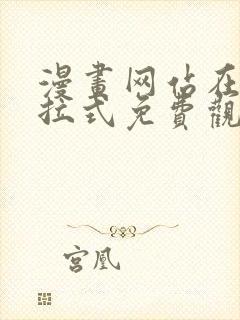 漫畫网佔在
拉式免費觀
宮凰